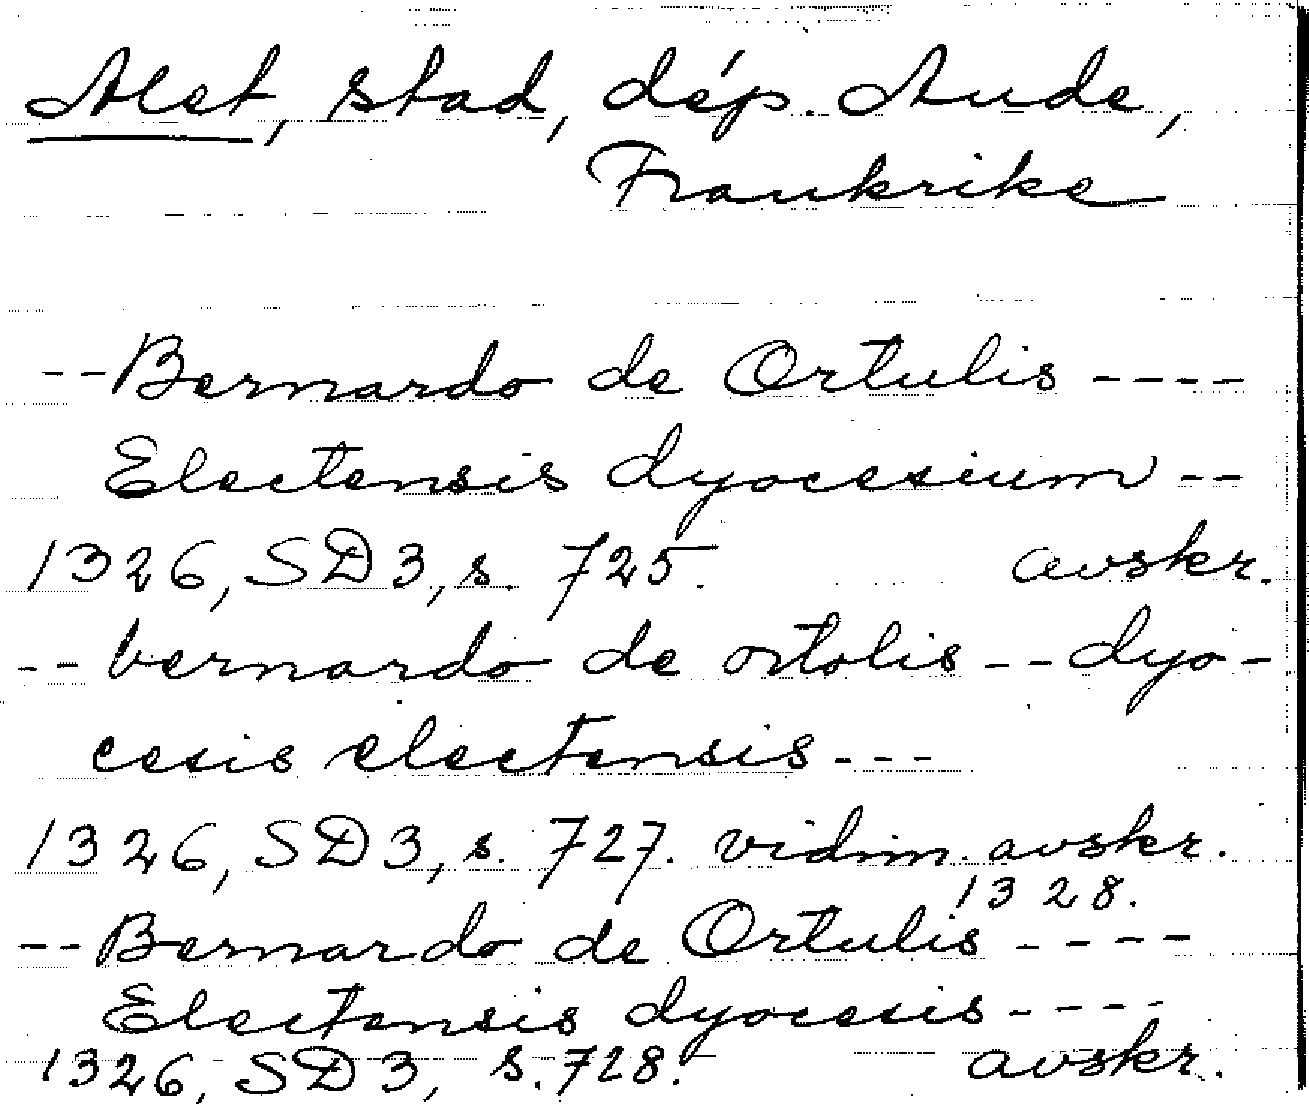 Alet, stad, dép. Aude,
Frankrike
-- Bernardo de Ortulis ----
Electensis dyocesium --
1326, SD 3, s. 725. avskr.
-- bernardo de ortolis -- dyo-
cesis electensis ---
1326, SD 3, s. 727. vidim. avskr.
1328.
-- Bernardo de Ortulis ----
Electensis dyocesis ----
1326, SD 3, s. 728. avskr.